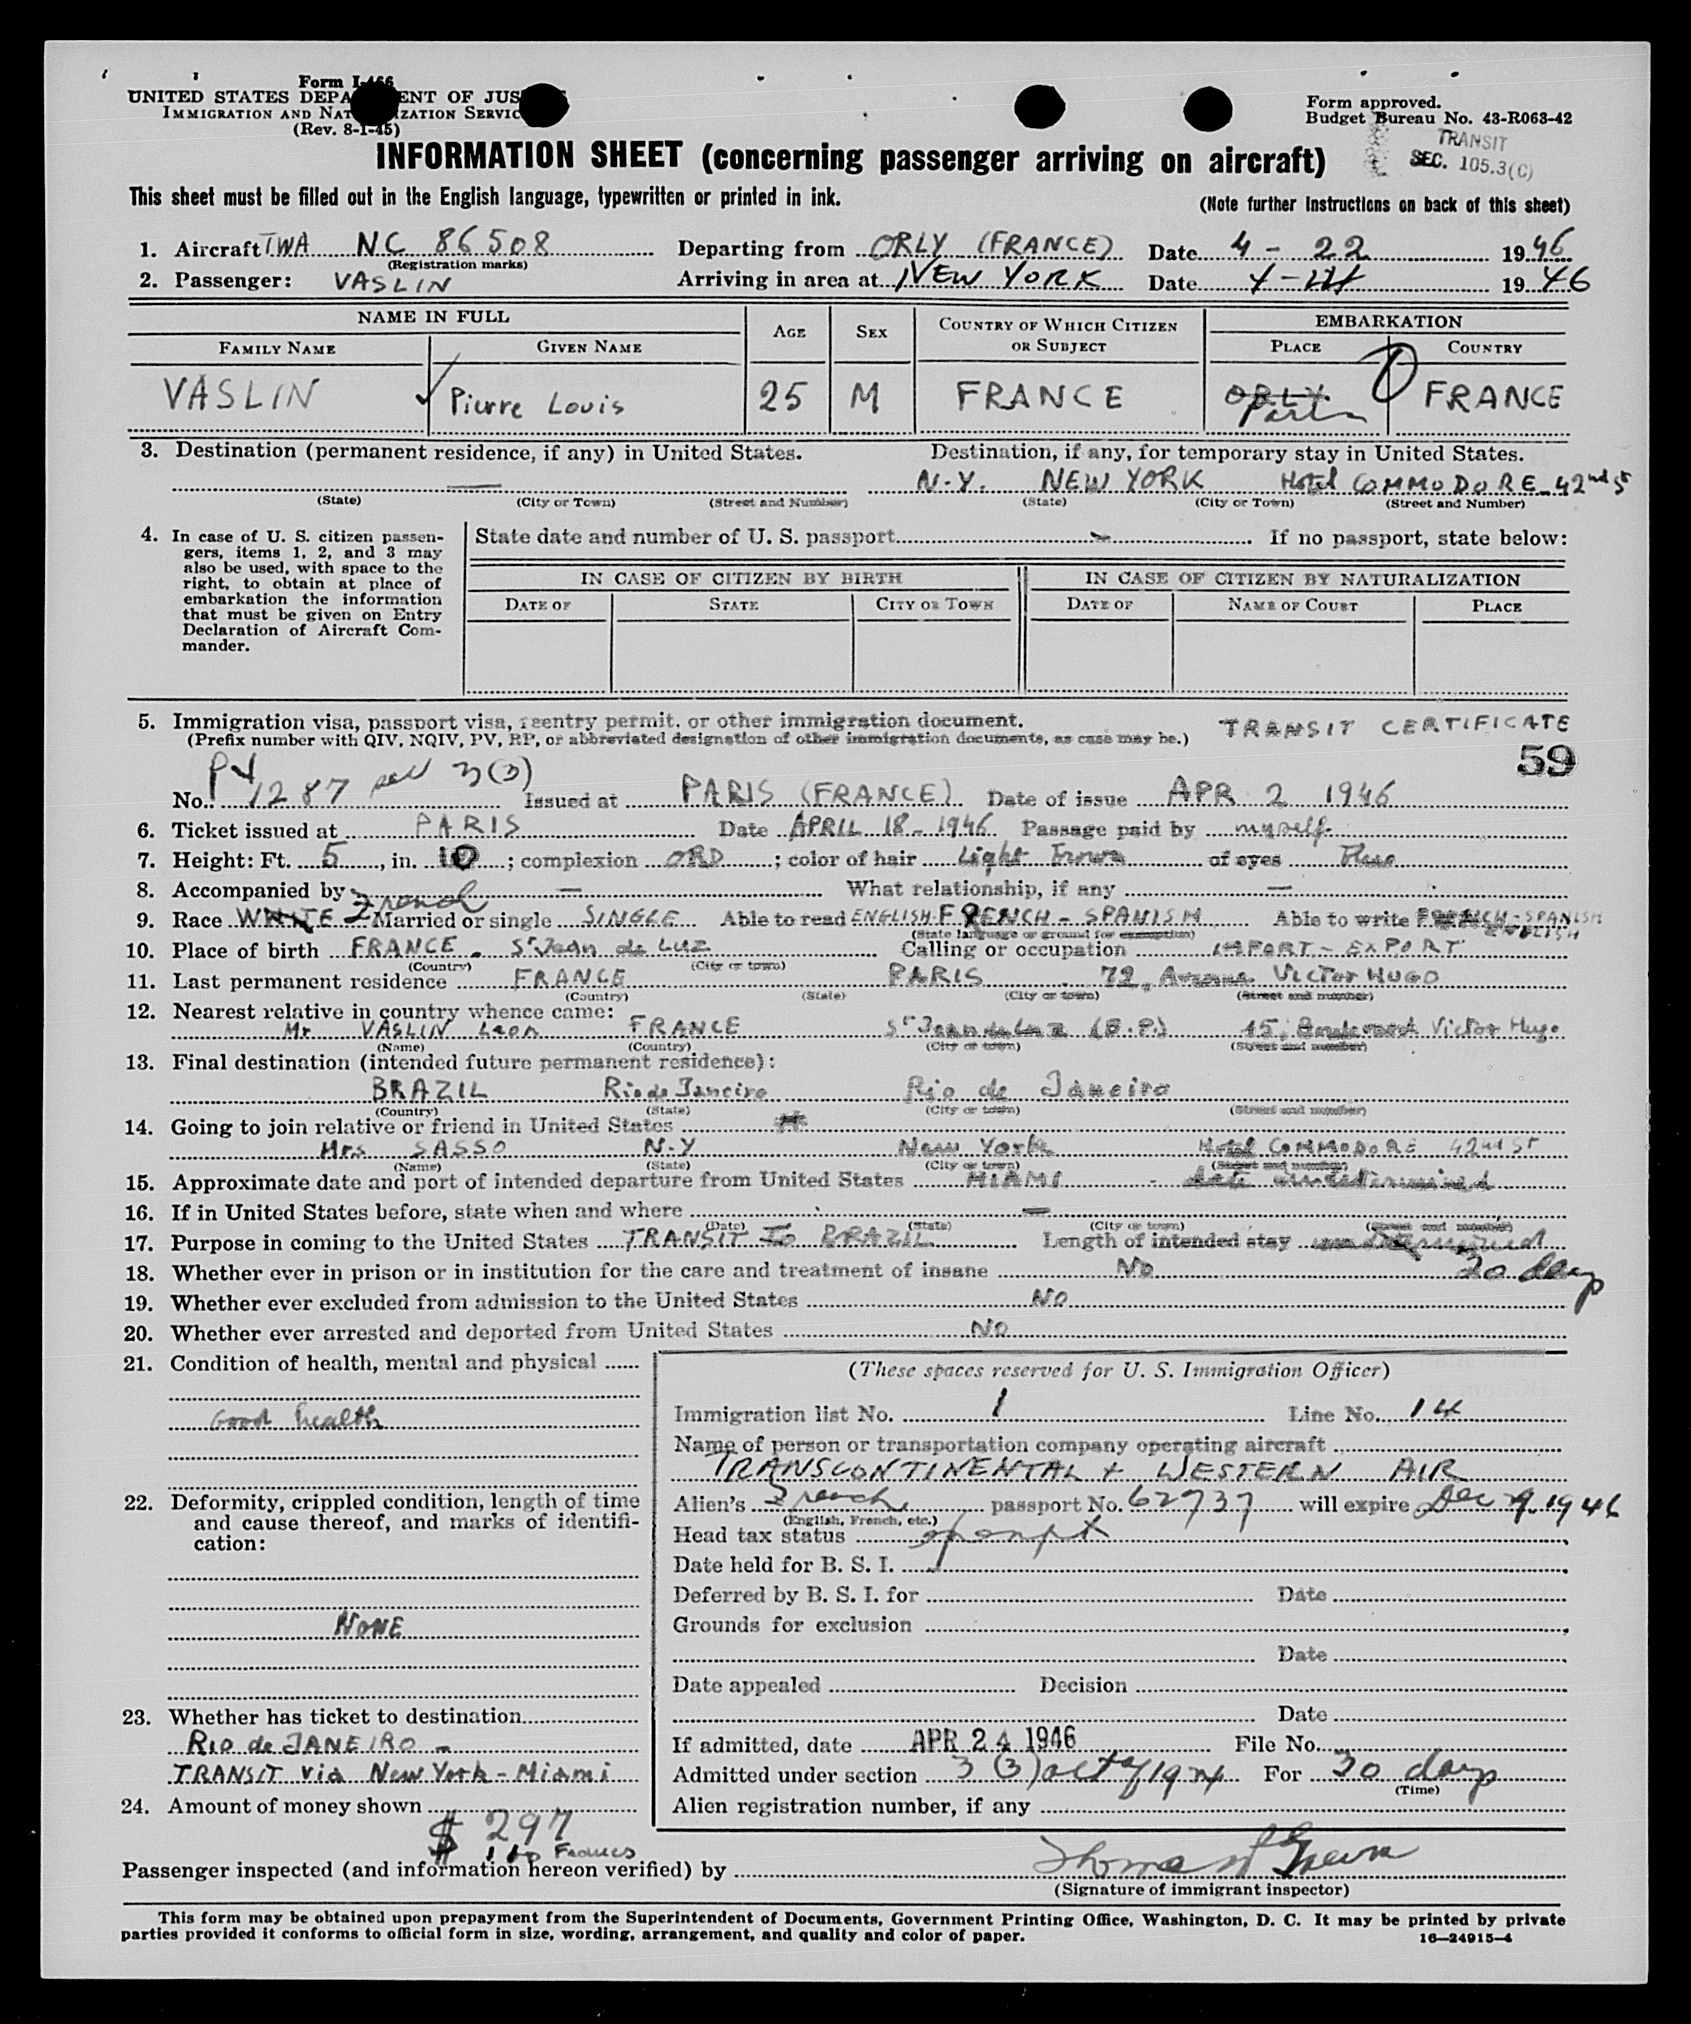 Form I-466
UNITED STATES DEPA ENT OF JUS
IMMIGRATION AND NAT IZATION SERVIC
(Rev. 8-1-45)
Form approved.
Budget Bureau No. 43-R063-42
TRANSIT
SEC. 105.3(C)
INFORMATION SHEET (concerning passenger arriving on aircraft)
This sheet must be filled out in the English language, typewritten or printed in ink.
(Note further instructions on back of this sheet)
1. Aircraft TWA NC 86508 Departing from ORLY (FRANCE) Date 4-22 1946
(Registration marks)
2. Passenger: VASLIN Arriving in area at NEW YORK Date 1946
NAME IN FULL AGE SEX COUNTRY OF WHICH CITIZEN OR SUBJECT EMBARKATION
FAMILY NAME GIVEN NAME PLACE COUNTRY
VASLIN Pierre Louis 25 M FRANCE ORLY FRANCE
Paris
3. Destination (permanent residence, if any) in United States. Destination, if any, for temporary stay in United States.
— N.Y. NEW YORK Hotel COMMODORE 42nd St
(State) (City or Town) (Street and Number) (State) (City or Town) (Street and Number)
4. In case of U. S. citizen passengers, items 1, 2, and 3 may also be used, with space to the right, to obtain at place of embarkation the information that must be given on Entry Declaration of Aircraft Commander.
State date and number of U. S. passport If no passport, state below:
IN CASE OF CITIZEN BY BIRTH IN CASE OF CITIZEN BY NATURALIZATION
DATE OF STATE CITY OR TOWN DATE OF NAME OF COURT PLACE
5. Immigration visa, passport visa, reentry permit, or other immigration document. TRANSIT CERTIFICATE
(Prefix number with QIV, NQIV, PV, RP, or abbreviated designation of other immigration documents, as case may be.)
59
PV 3(3)
No. 1287 Issued at PARIS (FRANCE) Date of issue APR 2 1946
6. Ticket issued at PARIS Date APRIL 18-1946 Passage paid by myself.
7. Height: Ft. 5, in. 10; complexion ORD; color of hair Light Brown of eyes Blue
8. Accompanied by — What relationship, if any —
French
9. Race WHITE Married or single SINGLE Able to read ENGLISH FRENCH - SPANISH Able to write FRENCH - SPANISH
ENGLISH
(State language or ground for exemption)
10. Place of birth FRANCE. St Jean de LUZ Calling or occupation IMPORT - EXPORT
(Country) (City or town)
11. Last permanent residence FRANCE PARIS 72, Avenue VICTOR HUGO
(Country) (State) (City or town) (Street and number)
12. Nearest relative in country whence came:
Mr VASLIN Leon FRANCE St Jean de Luz (B.P.) 15, Boulevard Victor Hugo
(Name) (Country) (City or town) (Street and number)
13. Final destination (intended future permanent residence):
BRAZIL Rio de Janeiro Rio de Janeiro
(Country) (State) (City or town) (Street and number)
14. Going to join relative or friend in United States
Mrs SASSO N.Y New York Hotel COMMODORE 42nd St
(Name) (State) (City or town) (Street and number)
15. Approximate date and port of intended departure from United States MIAMI - date undetermined
16. If in United States before, state when and where —
(Date) (State) (City or town) (Street and number)
17. Purpose in coming to the United States TRANSIT To BRAZIL Length of intended stay undetermined
18. Whether ever in prison or in institution for the care and treatment of insane No 30 days
19. Whether ever excluded from admission to the United States NO
20. Whether ever arrested and deported from United States NO
21. Condition of health, mental and physical
Good health
22. Deformity, crippled condition, length of time and cause thereof, and marks of identification:
NONE
23. Whether has ticket to destination
RIO de JANEIRO -
TRANSIT via New York - Miami
24. Amount of money shown
$ 297
Francs
(These spaces reserved for U. S. Immigration Officer)
Immigration list No. 1 Line No. 14
Name of person or transportation company operating aircraft
TRANSCONTINENTAL + WESTERN AIR
Alien's French passport No. 62737 will expire Dec 1946
(English, French, etc.)
Head tax status exempt
Date held for B. S. I.
Deferred by B. S. I. for Date
Grounds for exclusion
Date
Date appealed Decision
Date
If admitted, date APR 24 1946 File No.
Admitted under section 3(3) act of 1924 For 30 days
(Time)
Alien registration number, if any
Passenger inspected (and information hereon verified) by
(Signature of immigrant inspector)
This form may be obtained upon prepayment from the Superintendent of Documents, Government Printing Office, Washington, D. C. It may be printed by private
parties provided it conforms to official form in size, wording, arrangement, and quality and color of paper. 16—24915-4